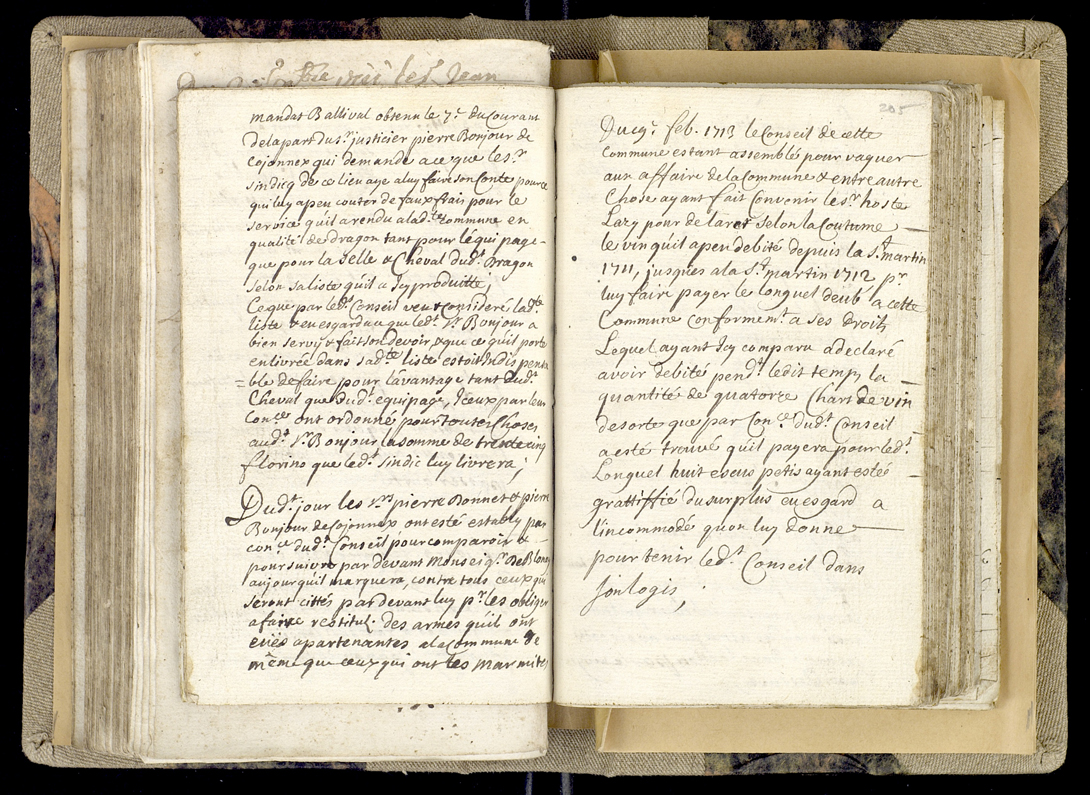 mandat Ballival obtenu le 7.e du Courant
delapart du s.r justicier pierre Bonjour de
Cojonnex qui demande a ce que les.r
sindicq de ce lieu aye aluy faire son Conte pource
qui luy a peu couter de faux frais pour le
service quil a rendu alad.te Commune en
qualité de dragon tant pour léquipage-
que pour la Selle & Cheval dud.t Dragon
selon sa liste quil a Icy produitte;
Ceque par led.t Conseil veu & consideré lad.te
liste & eu esgard a ce que led.t S.r Bonjour a
bien servy & fait son devoir, & que ce quil porte
en livrée dans sad.te liste estoit Indispensa
=ble de faire pour lávantage tant dud.t
Cheval que dud.t equipage, Iceux par leur
Con.ce ont ordonné pour toutes Choses
aud.t S.r Bonjour la somme de trente cinq
florins que led.t sindic luy livrera;
Dud.t jour les S.rs pierre Bonnet & pierre
Bonjour de Cojonnex ont esté establÿ par
con.ce dud.t Conseil pour comparoir &-
poursuivre par devant Monseig.r De Blonay
aujour quil marquera, contre tous ceux qui
seront cittés par devant luy p.r les obliger
a faire restitu.r des armes quils ont
euës apartenantes ala Commune de
même que ceux qui ont les marmites
205
Du 19.e feb. 1713 le Conseil de cette
Commune estant assemblé pour vaquer
aux affaire dela Commune & entre autre
Chose ayant fait Convenir les.r hoste
Lazy pour delarer selon la Coutume
le vin quil a peu debité depuis la S.t martin
1711, jusques ala S.t martin 1712 p.r
luy faire payer le Longuel deub a cette
Commune conformem.t a ses Droits
Lequel ayant Icy comparu a declaré
avoir debité pend.t ledit temps la
quantité de quatorze Chars de vin
desorte que par Con.ce dud.t Conseil
a esté trouvé quil payera pour led.t
Longuel huit escus petis ayant estée
grattiffié du surplus eu esgard a
lincommodé quon luy donne
pour tenir led.t Conseil dans
son logis;